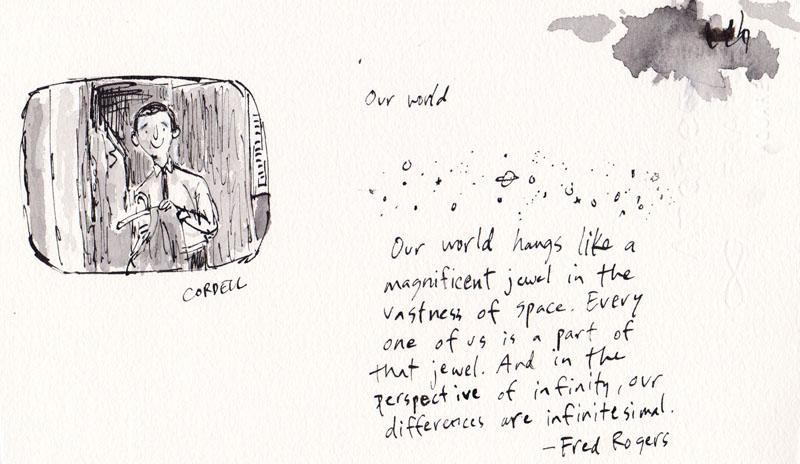 CORDELL
Our world
Our world hangs like a
magnificent jewel in the
vastness of space. Every
one of us is a part of
that jewel. And in the
perspective of infinity, our
differences are infinitesimal.
—Fred Rogers